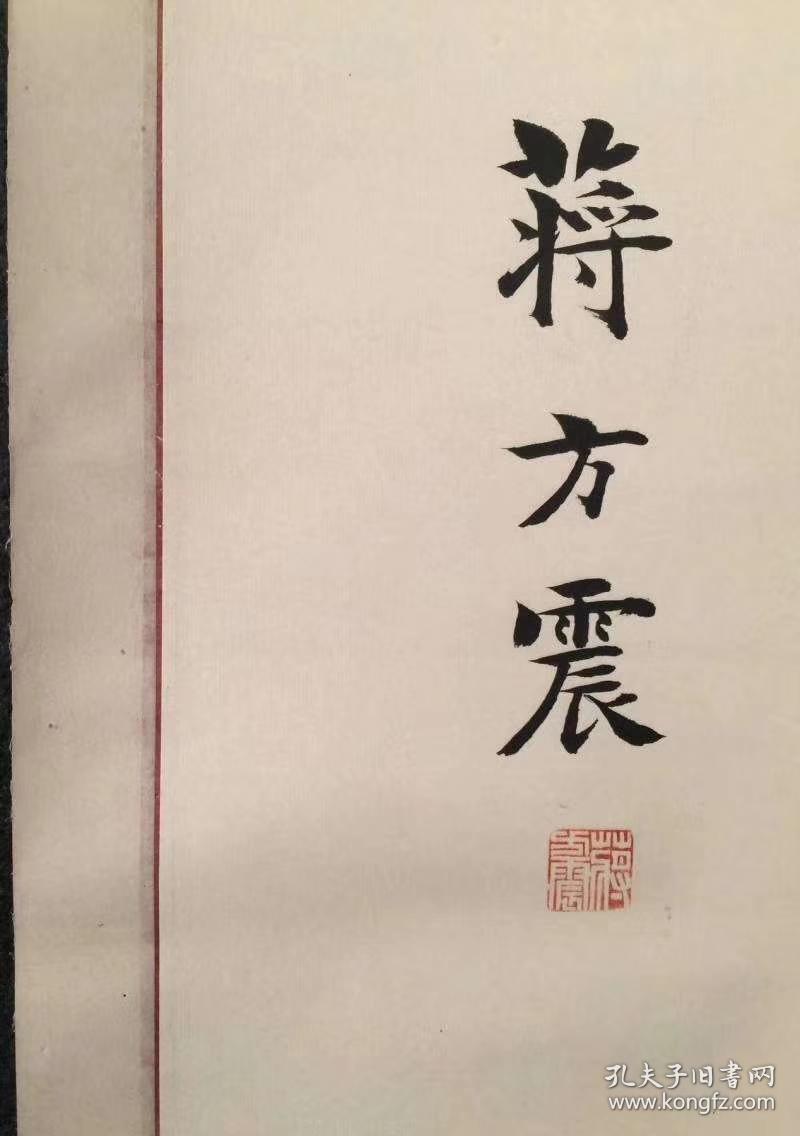 蔣方震
蔣方震
孔夫子旧书网
www.kongfz.com